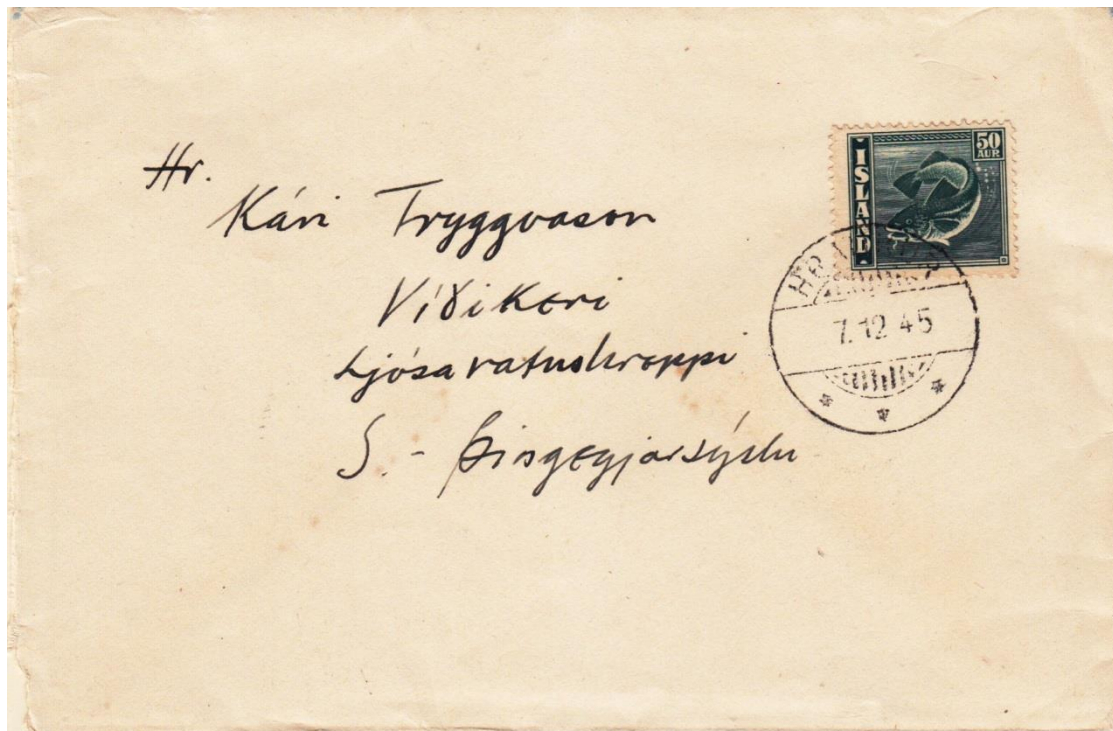 Hr.
Kári Tryggvason
Víðikeri
Ljósavatnshreppi
S. - Þingeyjarsýslu
ÍSLAND
50
AUR
7.12 45